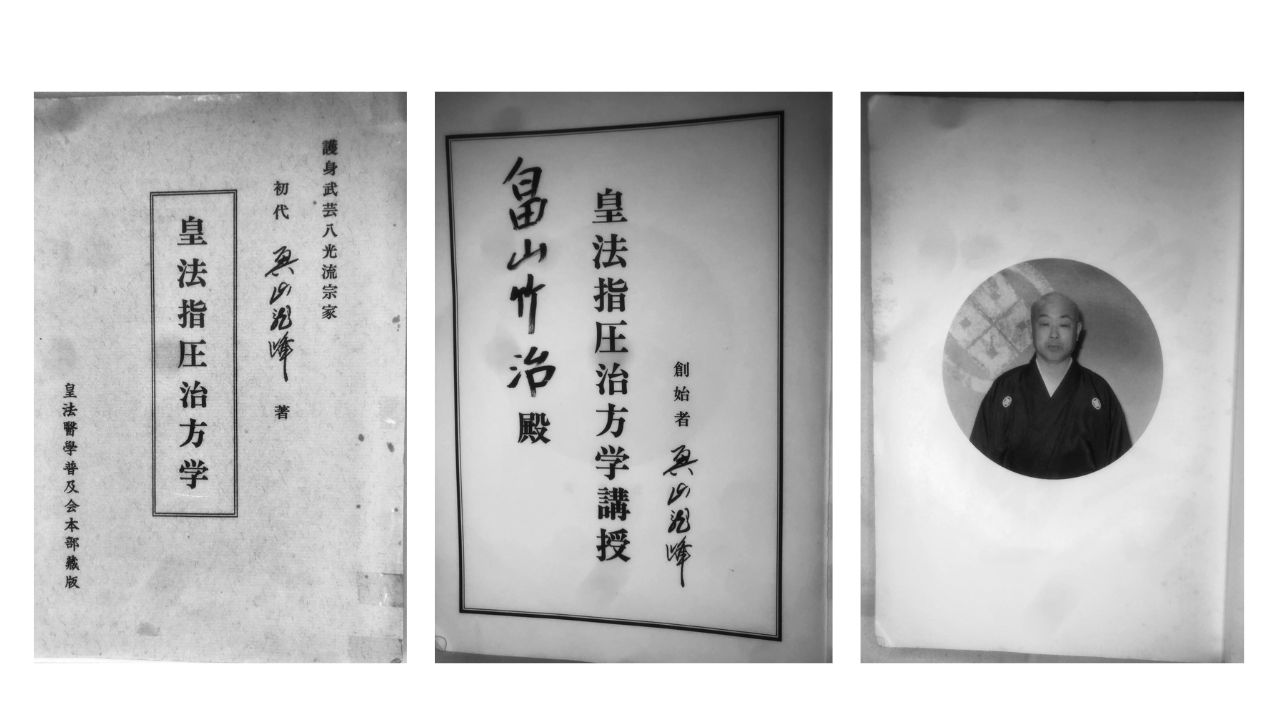 護身武芸八光流宗家
初代 奥山龍峰 著
皇法指圧治方学
皇法醫學普及会本部藏版
創始者 奥山龍峰
皇法指圧治方学講授
畠山竹治殿